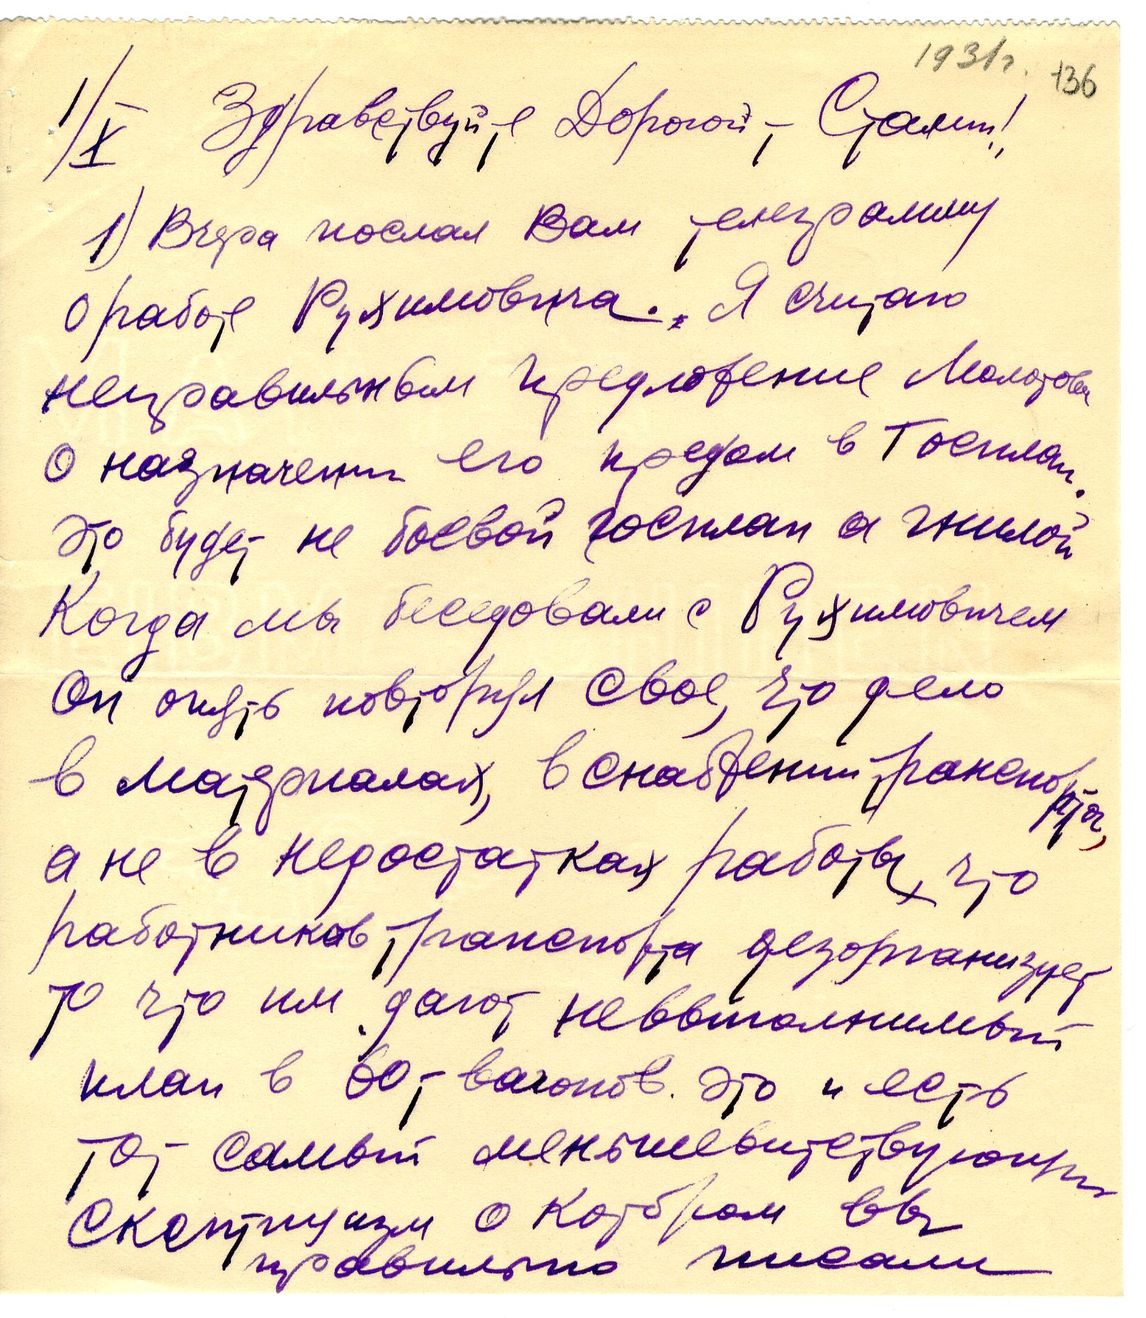 1931г. 136
1/X Здравствуйте Дорогой т Сталин!
1) Вчера послал Вам телеграмму
о работе Рухимовича. Я считаю
неправильным предложение Молотова
о назначении его предом в Госплан.
Это будет не боевой госплан а гнилой
Когда мы беседовали с Рухимовичем
Он опять повторял свое, что дело
в материалах, в снабжении транспорта,
а не в недостатках работы, что
работников транспорта дезорганизует
то что им дают невыполнимый
план в 60 т вагонов. Это и есть
тот самый меньшевитствующий
скептицизм о котором вы
правильно писали